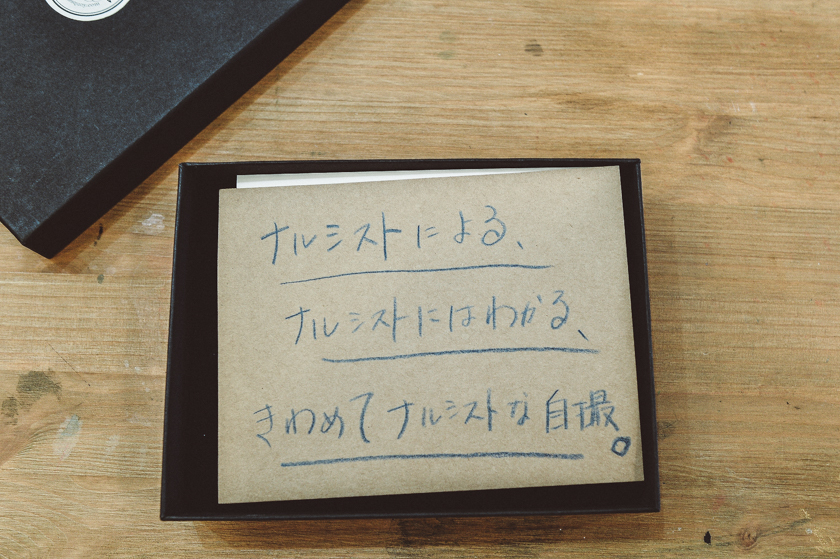 ナルシストによる、
ナルシストにはわかる、
きわめてナルシストな自撮。